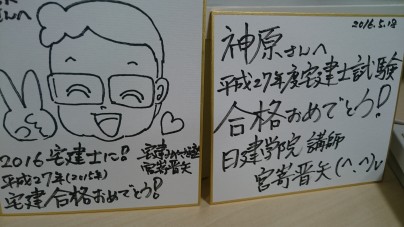 さんへ
2016宅建士に!
平成27年(2015年)
宅建合格おめでとう!
宮嵜晋矢
2016.5.18
神原さんへ
平成27年度宅建士試験
合格おめでとう!
日建学院 講師
宮嵜晋矢(^.^)v